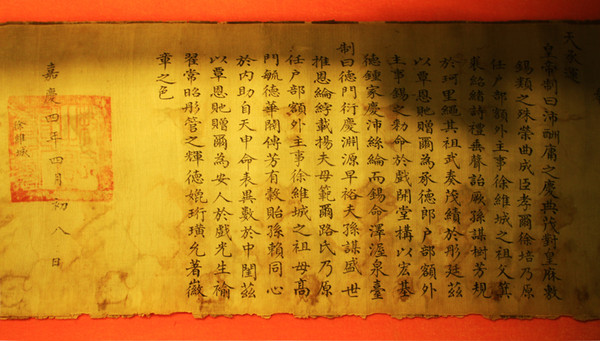 天承運
皇帝制曰沛酬庸之慶典茂對皇庥敷
錫類之殊榮曲成臣孝爾徐培乃原
任戶部額外主事徐維城之祖父箕
裘紹緒詩禮垂聲詒厥孫謀樹芳規
於珂里繩其祖武奏茂績於彤廷茲
以覃恩貤贈爾為承德郎戶部額外
主事錫之勅命於戲開堂構以宏基
德鍾家慶沛絲綸而錫命澤溼泉臺
制曰德門衍慶淵源早裕夫孫謀盛世
推恩綸綍載揚夫母範爾路氏乃原
任戶部額外主事徐維城之祖母高
門毓德華閥傳芳有穀貽孫賴同心
於內助自天申命表異數於中閨茲
以覃恩貤贈爾為安人於戲光生褕
翟常昭彤管之輝德媲珩璜允著徽
章之色
嘉慶四年四月初八日
徐維城